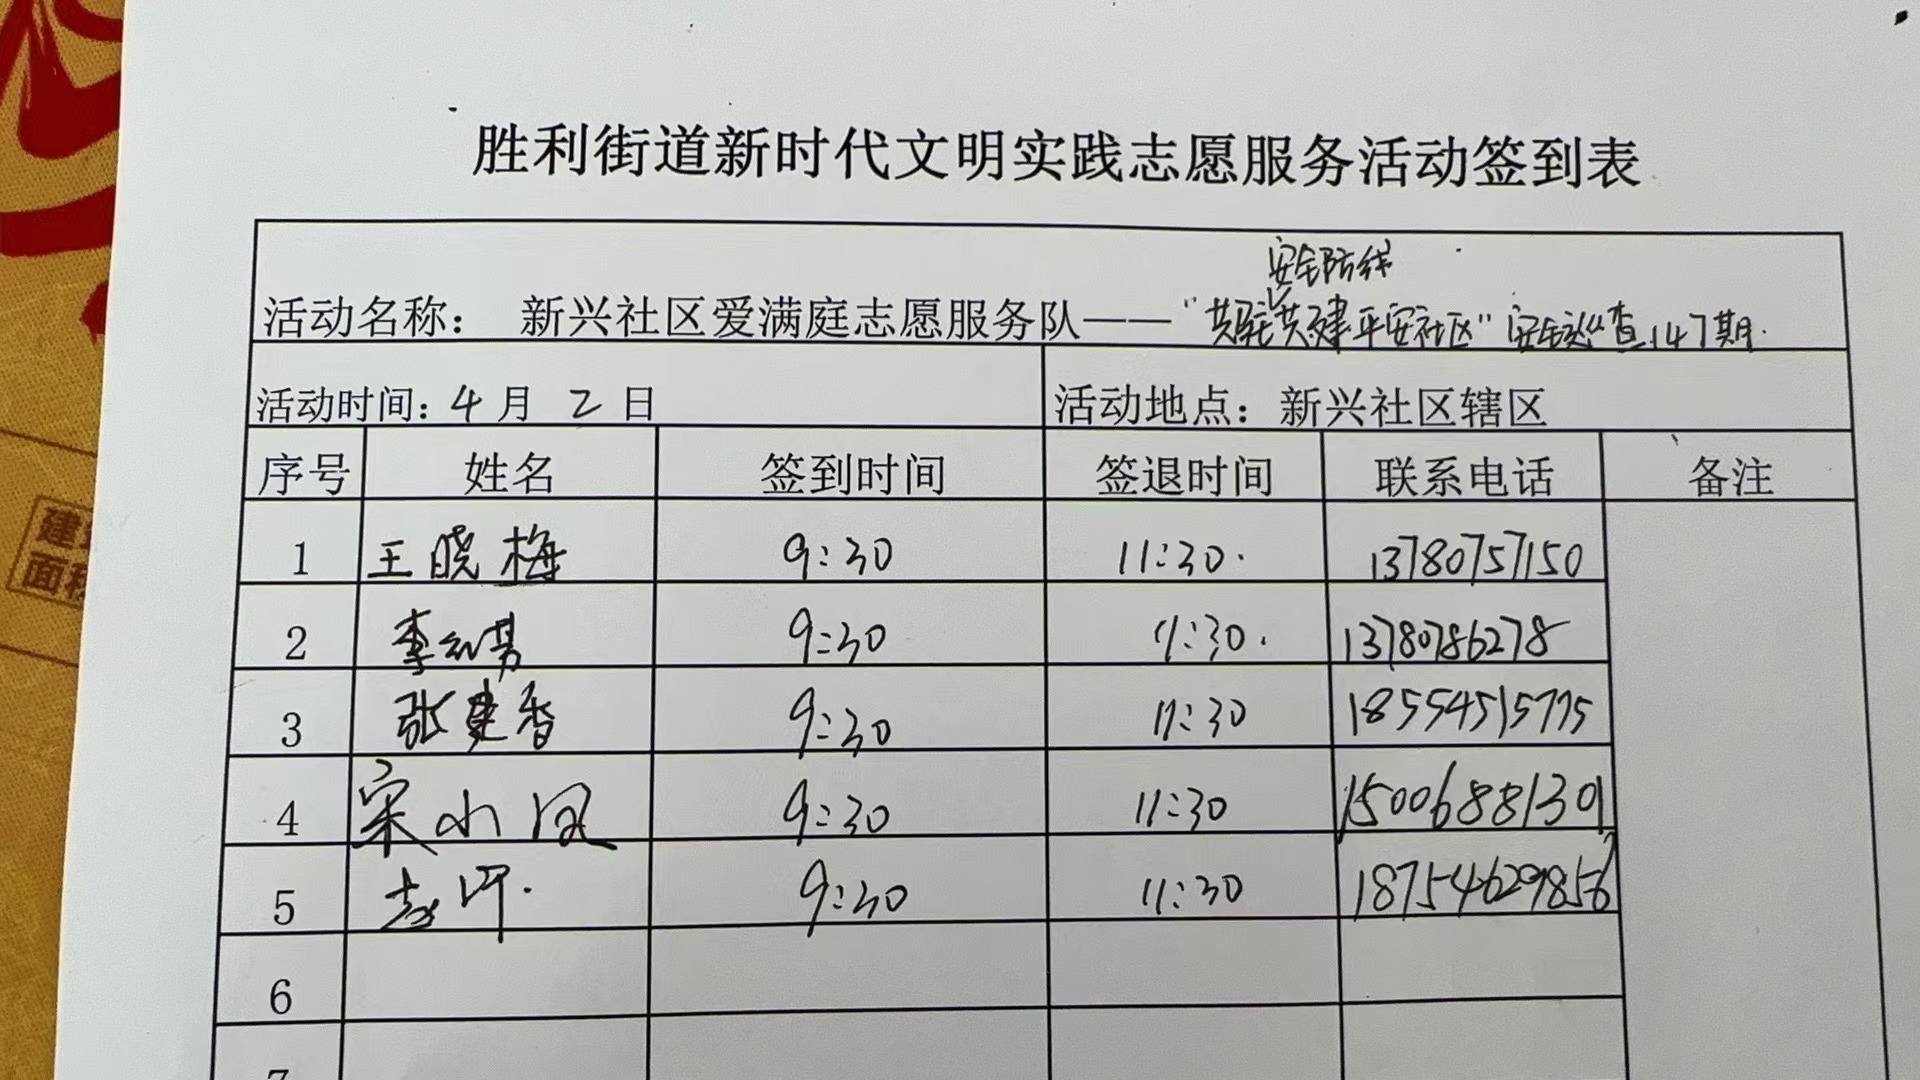 胜利街道新时代文明实践志愿服务活动签到表
安全防线
活动名称： 新兴社区爱满庭志愿服务队——“共筑共建平安社区”安全巡查147期.
活动时间：4月 2 日 活动地点：新兴社区辖区
序号 姓名 签到时间 签退时间 联系电话 备注
1 王晓梅 9:30 11:30. 13780757150
2 李 9:30 11:30. 13780786278
3 张建香 9:30 11:30 18554515775
4 宋小凤 9:30 11:30 15006881301
5 赵 9:30 11:30 18754629856
6
7
建
面积